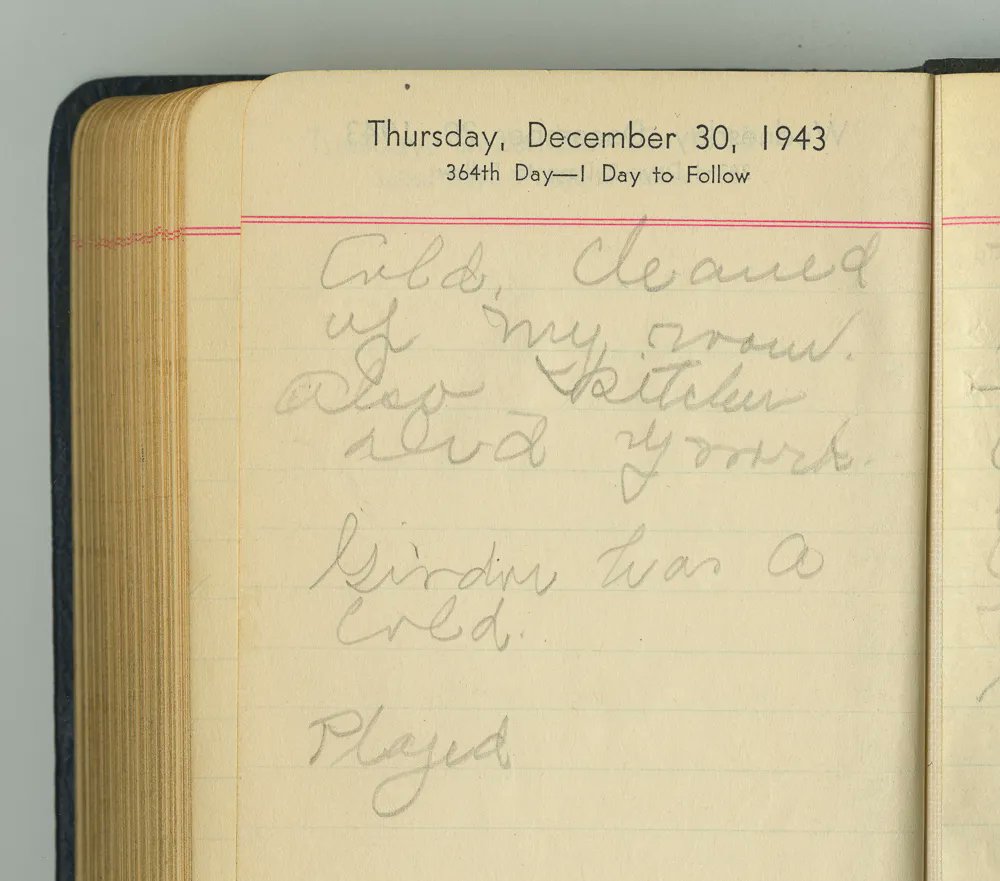 Thursday, December 30, 1943
364th Day—1 Day to Follow
Cold, Cleaned
up my room.
Also kitchen
and
has a
Cold.
Played